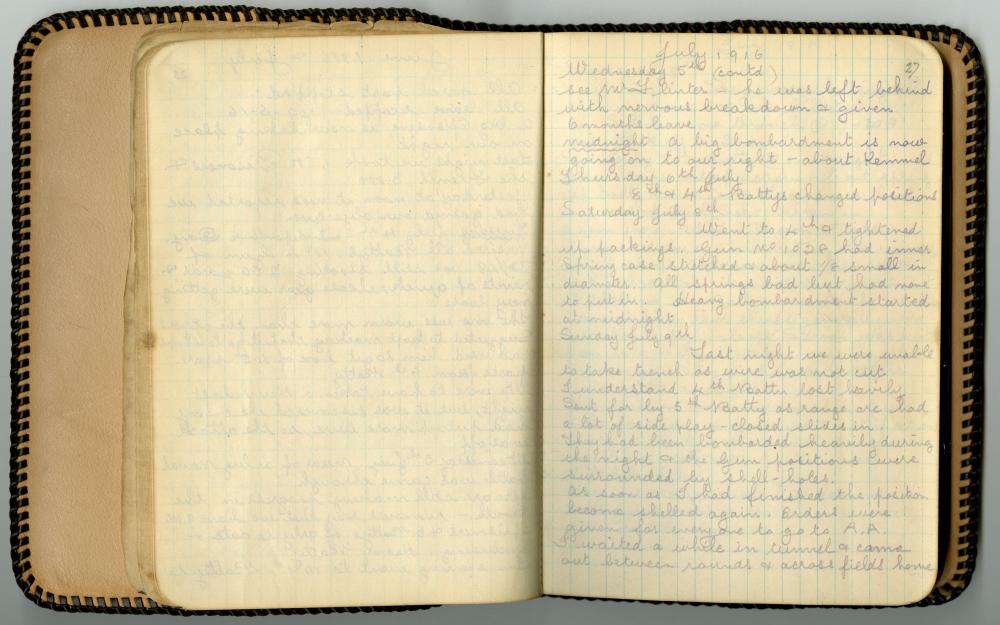 July 1916
27
Wednesday 5th (contd)
see Mr Linter - he was left behind
with nervous breakdown & given
6 months leave
midnight a big bombardment is now
going on to our right - about Kemmel
Thursday 6th July
8th & 4th Battys changed positions
Saturday July 8th
Went to 4th & tightened
up packings. Gun No 1028 had inner
Spring case stretched & about 1/8 small in
diameter. All springs bad but had none
to put in. Heavy bombardment started
at midnight
Sunday July 9th
Last night we were unable
to take trench as wire was not cut
I understand 4th Battn lost heavily
Sent for by 5th Batty as range arc had
a lot of side play - closed slides in.
They had been bombarded heavily during
the night & the Gun positions were
surrounded by shell-holes.
As soon as I had finished the position
become shelled again. Orders were
given for everyone to go to A.A.
I waited a while in tunnel & came
out between rounds & across fields home